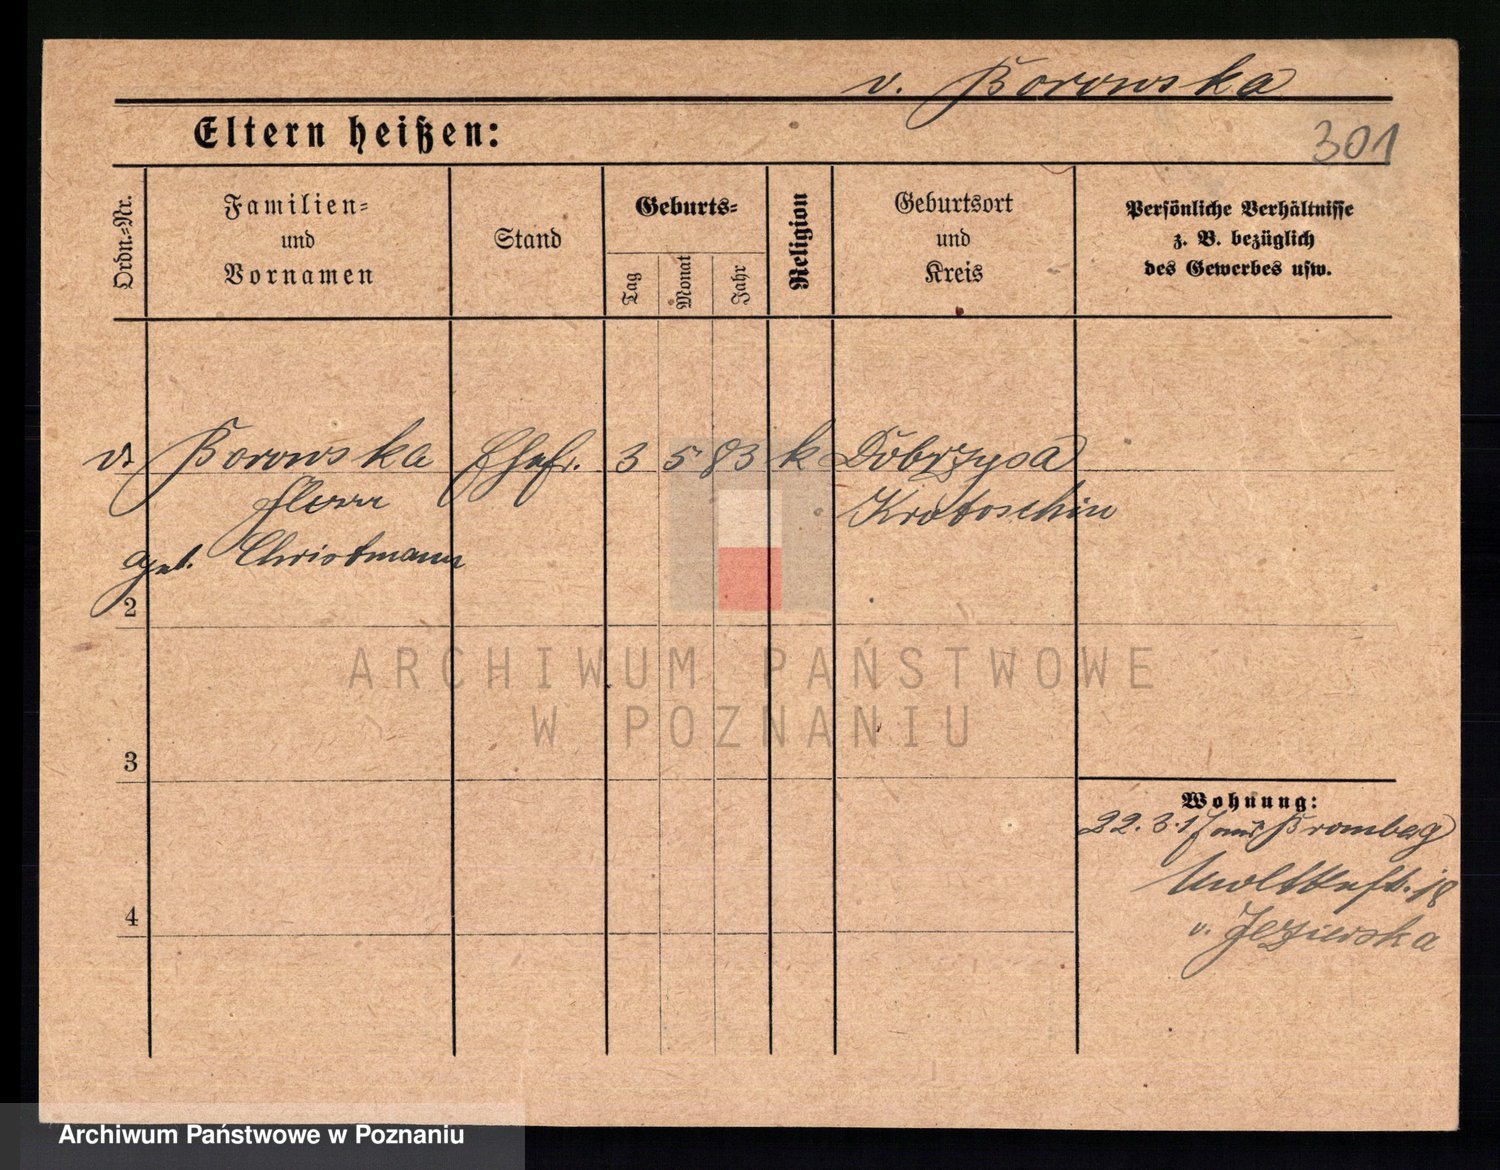 v. Borowska
Eltern heißen:
301
Ordn.-Nr.
Familien-
und
Vornamen
Stand
Geburts-
Tag
Monat
Jahr
Religion
Geburtsort
und
Kreis
Persönliche Verhältnisse
z. B. bezüglich
des Gewerbes usw.
v. Borowska Ehefr. 3 5 83 k Dobrzyca
Krotoschin
geb. Christmann
2
ARCHIWUM PAŃSTWOWE
W POZNANIU
3
Wohnung:
22.3.17 aus Bromberg
Moltkestr. 18
4
v. Jezierska
Archiwum Państwowe w Poznaniu